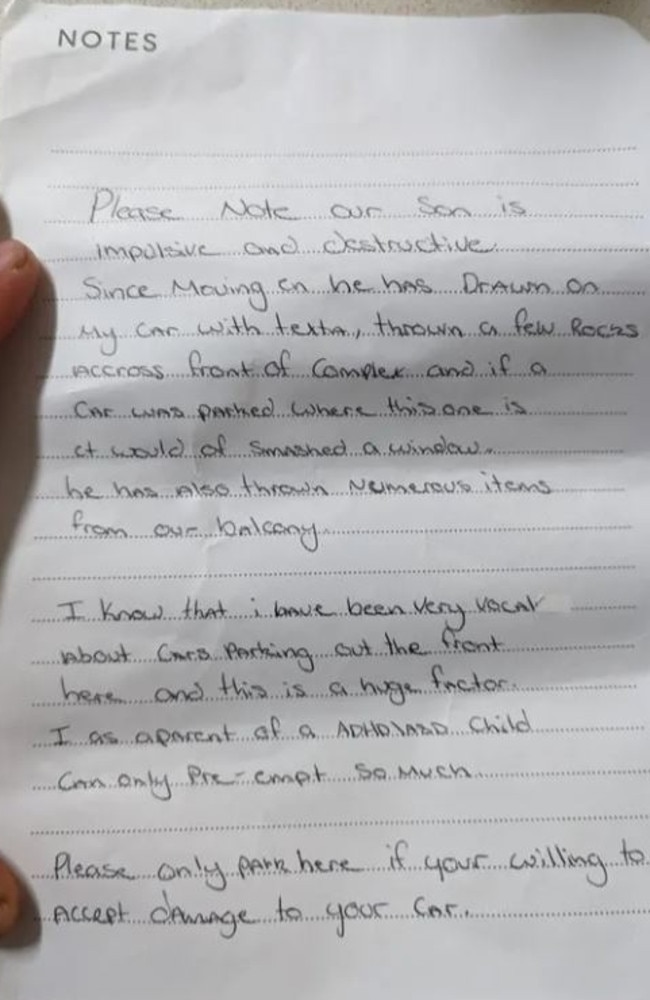 NOTES
Please Note our Son is
impulsive and destructive
Since Moving in he has Drawn on
My Car with texta, thrown a few Rocks
Accross front of Complex and if a
Car was parked where this one is
it would of smashed a window.
he has also thrown Numerous items
from our balcony
I know that i have been very vocal
about Cars Parking out the front
here and this is a huge factor.
I as aparent of a ADHD\ASD Child
Can only Pre-empt So Much
Please only park here if your willing to
Accept damage to your Car.